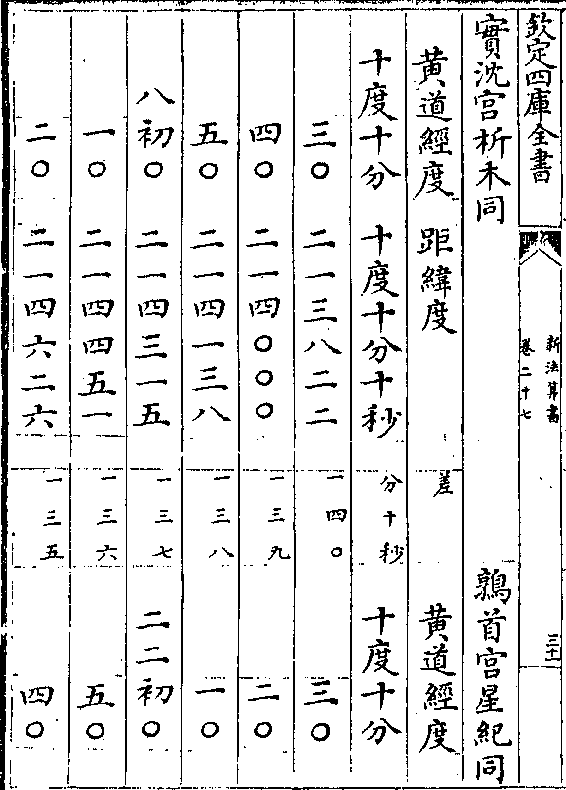 欽定四庫全書
新法算書
卷二十七
三十一
實沈宫析木同 鶉首宫星紀同
黄道經度 距緯度 差 黄道經度
十度十分 十度十分十秒 分十秒 十度十分
三〇 二一三八二二 一四〇 三〇
四〇 二一四〇〇〇 一三九 二〇
五〇 二一四一三八 一三八 一〇
八初〇 二一四三一五 一三七 二二初〇
一〇 二一四四五一 一三六 五〇
二〇 二一四六二六 一三五 四〇